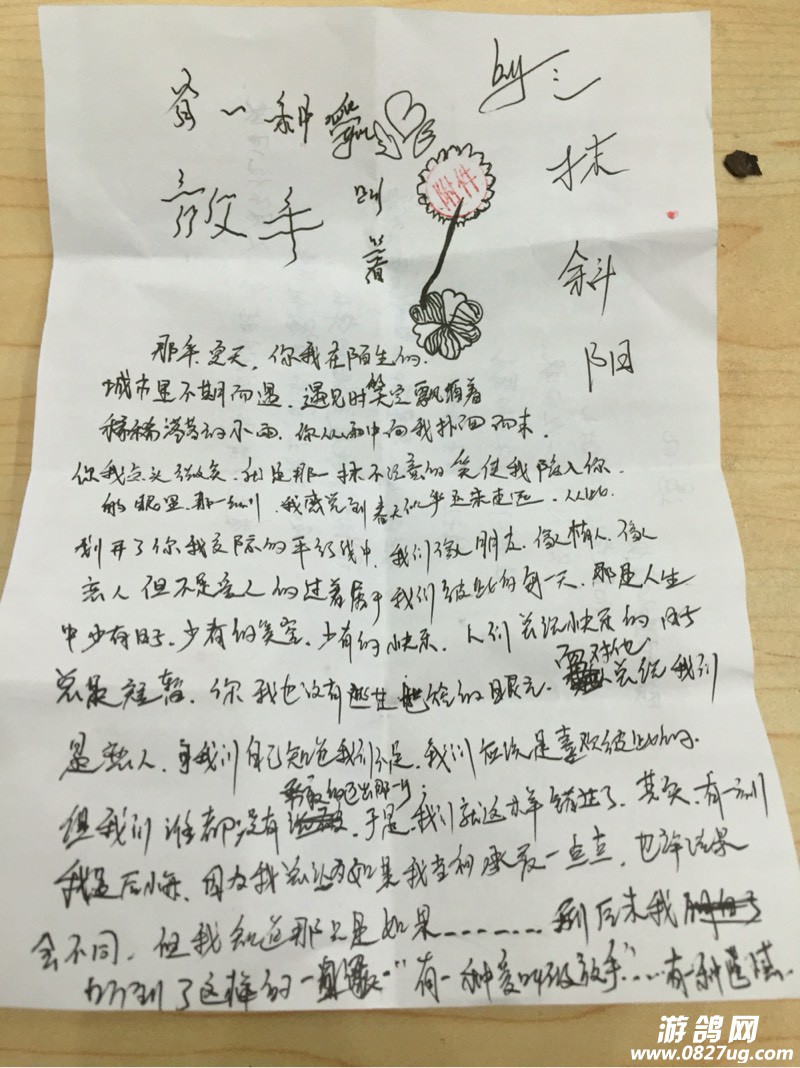 有一种爱
放手
叫着
附件
by 三
抹
斜
阳
那年夏天,你我在陌生的
城市里不期而遇,遇见时天空飘洒着
稀稀落落的小雨,你从雨中向我扑面而来,
你我点头微笑,就是那一抹不经意的笑使我陷入你
的眼里,那一刻,我感觉到春天似乎还未走远,从此
划开了你我交际的平行线中,我们像朋友,像情人,像
恋人但不是恋人的过着属于我们彼此的每一天,那是人生
中少有的,少有的,少有的快乐,人们总说快乐的时光
总是短暂,你我也没有逃其他给的眼光,面对他人总说我们
是恋人,有我们自己知道我们不是,我们应该是喜欢彼此的,
但我们谁都没有勇敢的迈出那一步,于是,我们就这样错过了,其实,有一刻
我是后悔,因为我总认为如果我当初承认一点点,也许结果
会不同,但我知道那只是如果………到后来我
听到了这样的一"有一种爱叫做放手"……有一种
游鸽网
www.0827ug.com